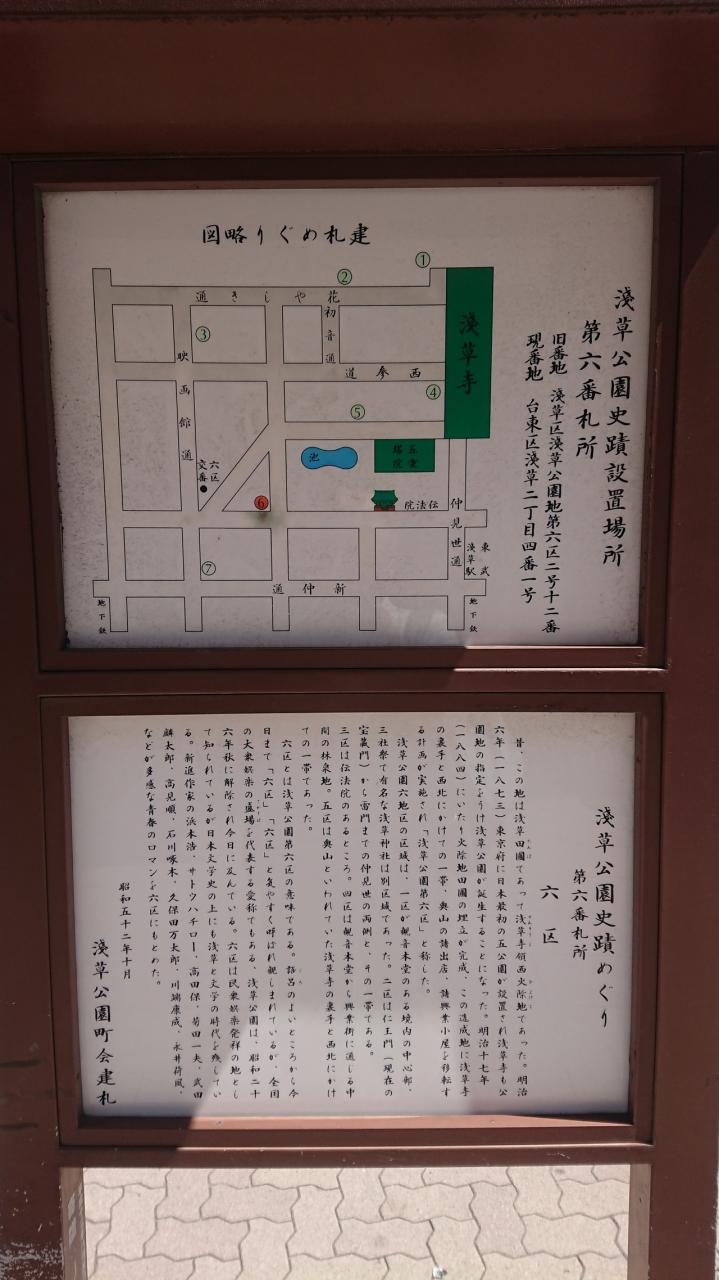 淺草公園史蹟設置場所
第六番札所
旧番地　淺草区淺草公園地第六区二号十二番
現番地　台東区淺草二丁目四番一号
図略りぐめ札建
①
②
通きしや花
初音通
③
映画館通
道参西
淺草寺
④
⑤
池
塔院
五重
六区
交番
⑥
院法伝
仲見世通
東武
淺草駅
⑦
通仲新
地下鉄
地下鉄
淺草公園史蹟めぐり
第六番札所
六区
昔、この地は浅草田圃であって浅草寺領西火除地であった。明治
六年（一八七三）東京府に日本最初の五公園が設置され浅草寺も公
園地の指定をうけ浅草公園が誕生することになった。明治十七年
（一八八四）にいたり火除地田圃の埋立が完成、この造成地に浅草寺
の裏手と西北にかけての一帯、奥山の諸出店、諸興業小屋を移転す
る計画が実施され「浅草公園第六区」と称した。
浅草公園六地区の区域は、一区が観音本堂のある境内の中心部、
三社祭で有名な浅草神社は別区域であった。二区は仁王門（現在の
宝蔵門）から雷門までの仲見世の両側と、その一帯である。
三区は伝法院のあるところ。四区は観音本堂から興業街に通じる中
間の林泉地。五区は奥山といわれていた浅草寺の裏手と西北にかけ
ての一帯であった。
六区とは浅草公園第六区の意味である。語呂のよいところから今
日まで「六区」「六区」と気やすく呼ばれ親しまれているが、全国
の大衆娯楽の盛場を代表する愛称でもある、浅草公園は、昭和二十
六年秋に解除され今日に及んでいる。六区は民衆娯楽発祥の地とし
て知られているが日本文学史の上にも浅草と文学の時代を残してい
る。新進作家の浜本浩、サトウハチロー、高田保、菊田一夫、武田
麟太郎、高見順、石川啄木、久保田万太郎、川端康成、永井荷風、
などが多感な青春のロマンを六区にもとめた。
昭和五十二年十月
淺草公園町会建札